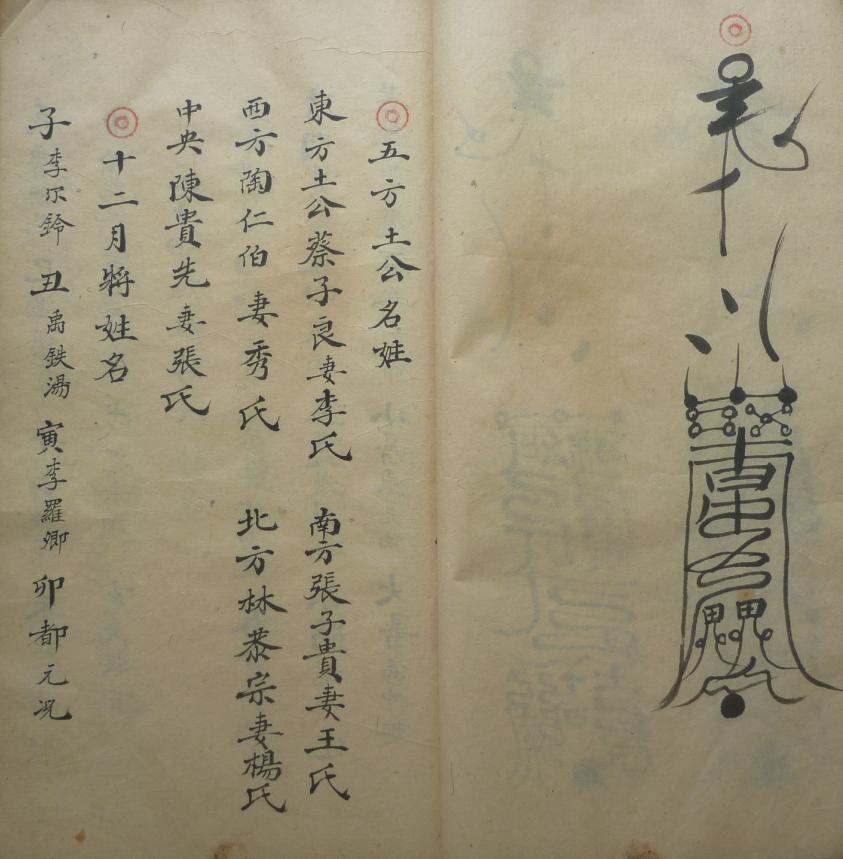 五方土公名姓
東方土公蔡子良妻李氏 南方張子貴妻王氏
西方陶仁伯妻秀氏 北方林恭宗妻楊氏
中央陳貴先妻張氏
十二月將姓名
子李尔鈴 丑禹鉄湯 寅李羅卿 卯都元况